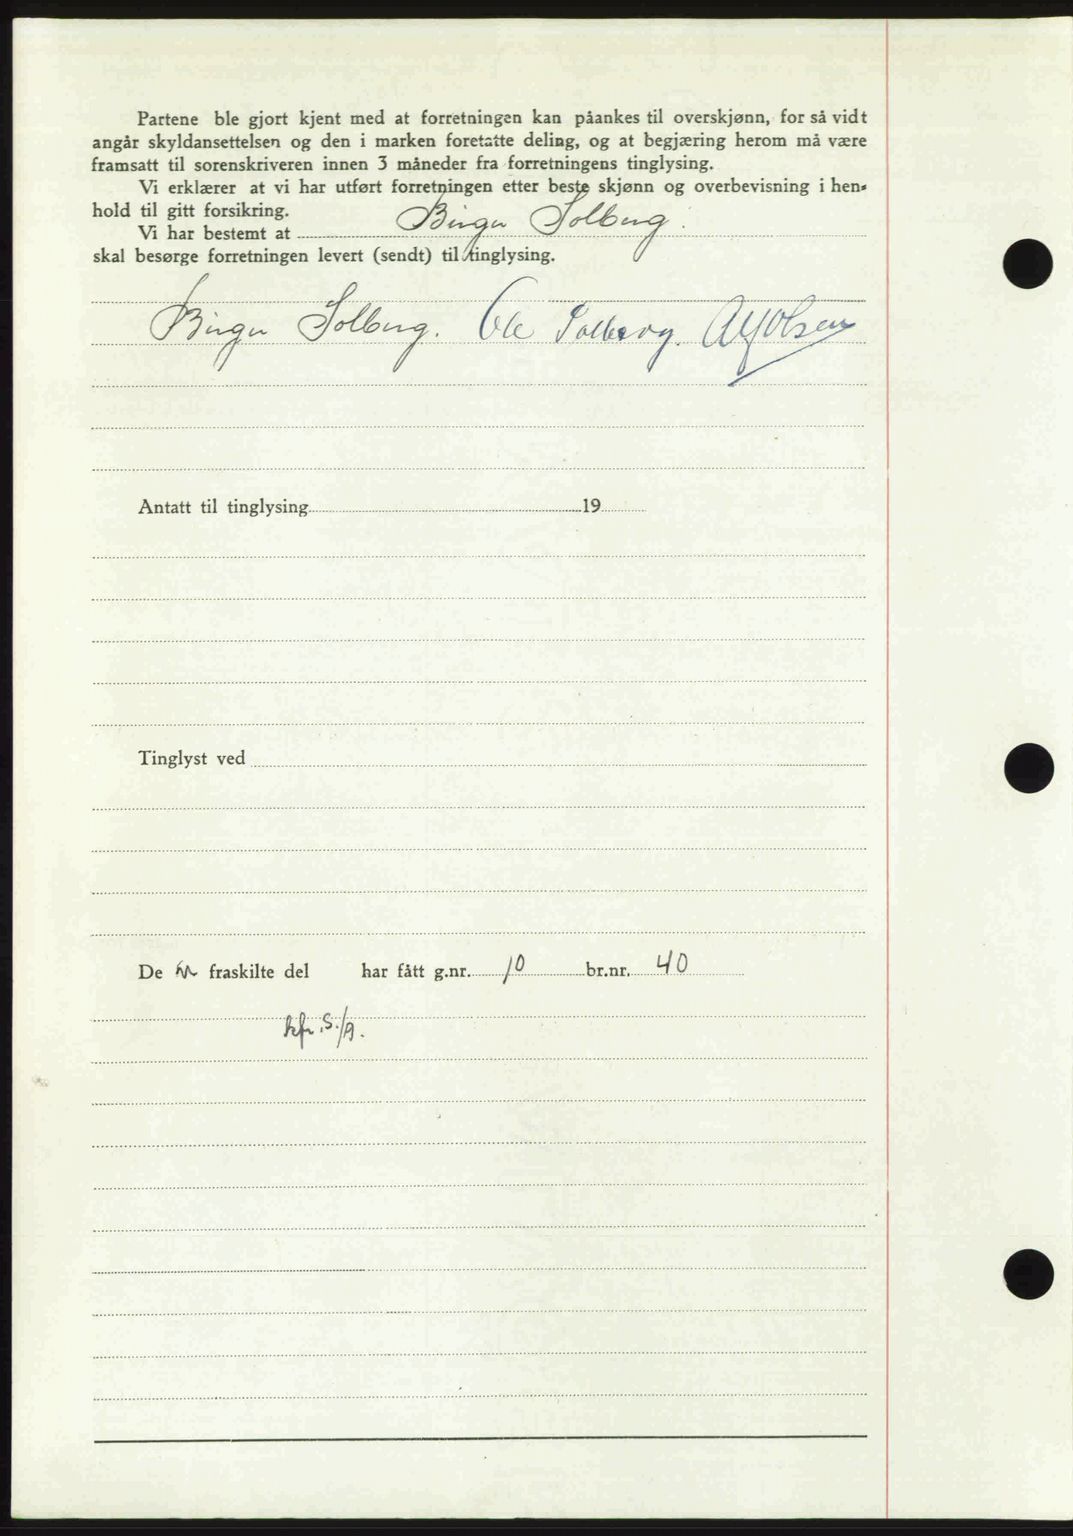 Partene ble gjort kjent med at forretningen kan påankes til overskjønn, for så vidt
angår skyldansettelsen og den i marken foretatte deling, og at begjæring herom må være
framsatt til sorenskriveren innen 3 måneder fra forretningens tinglysing.
Vi erklærer at vi har utført forretningen etter beste skjønn og overbevisning i hen-
hold til gitt forsikring.
Vi har bestemt at Birger Solberg.
skal besørge forretningen levert (sendt) til tinglysing.
Birger Solberg. Ole Solberg. Olsen
Antatt til tinglysing 19
Tinglyst ved
De n fraskilte del har fått g.nr. 10 br.nr. 40
kfr. S./A.